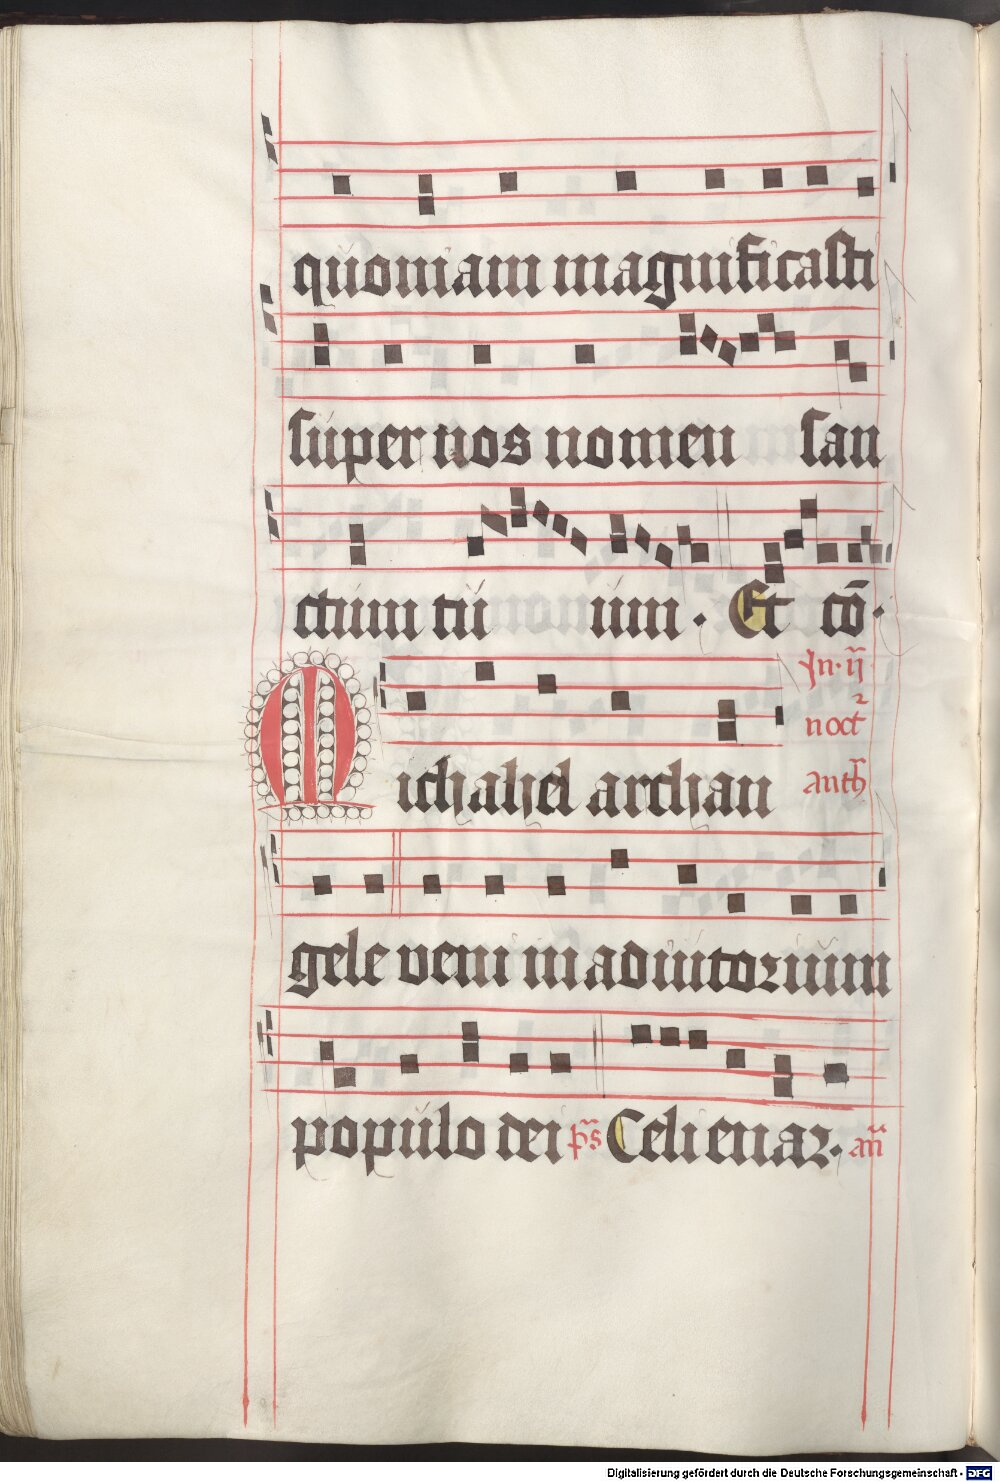 quoniam magnificasti
super nos nomen san
ctum tu um · Et cō ·
Jn · ij
2
noct
Michahel archan
anth
gele veni in adiutorium
populo dei ps Celi enar · an
Digitalisierung gefördert durch die Deutsche Forschungsgemeinschaft - DFG